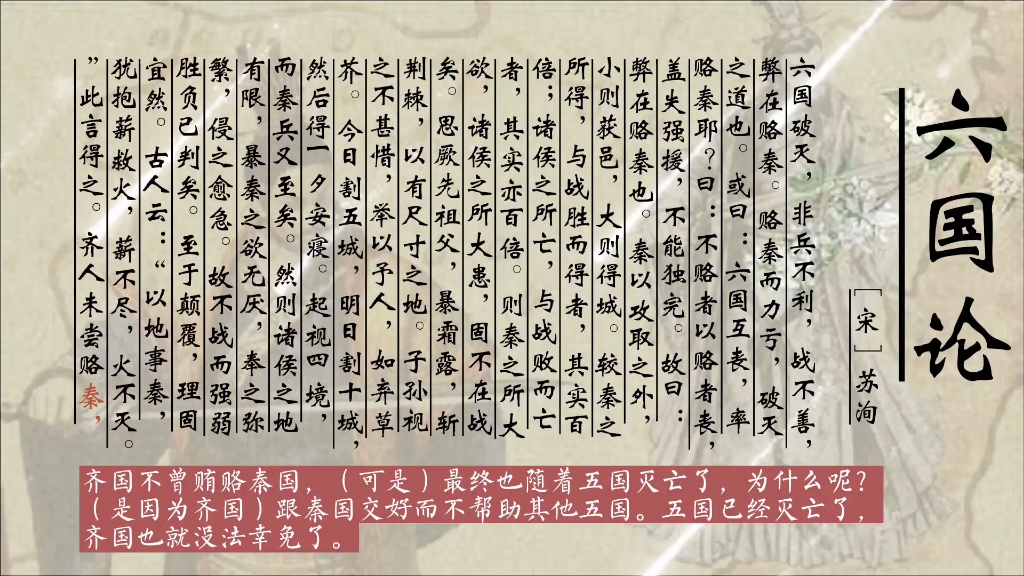 六国论
[宋]苏洵
六国破灭，非兵不利，战不善，
弊在赂秦。赂秦而力亏，破灭
之道也。或曰：六国互丧，率
赂秦耶？曰：不赂者以赂者丧，
盖失强援，不能独完。故曰：
弊在赂秦也。秦以攻取之外，
小则获邑，大则得城。较秦之
所得，与战胜而得者，其实百
倍；诸侯之所亡，与战败而亡
者，其实亦百倍。则秦之所大
欲，诸侯之所大患，固不在战
矣。思厥先祖父，暴霜露，斩
荆棘，以有尺寸之地。子孙视
之不甚惜，举以予人，如弃草
芥。今日割五城，明日割十城，
然后得一夕安寝。起视四境，
而秦兵又至矣。然则诸侯之地
有限，暴秦之欲无厌，奉之弥
繁，侵之愈急。故不战而强弱
胜负已判矣。至于颠覆，理固
宜然。古人云：“以地事秦，
犹抱薪救火，薪不尽，火不灭。
”此言得之。齐人未尝赂秦，
齐国不曾贿赂秦国，（可是）最终也随着五国灭亡了，为什么呢？
（是因为齐国）跟秦国交好而不帮助其他五国。五国已经灭亡了，
齐国也就没法幸免了。